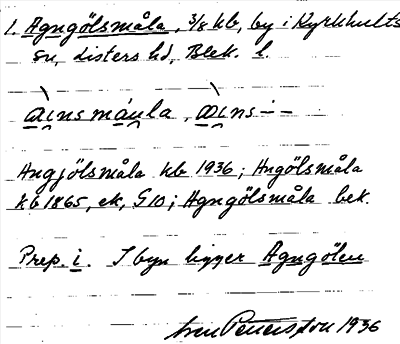 1. Agngölsmåla, 3/8 kb, by i Kyrkhults
sn, Listers hd, Blek. l.
Angjölsmåla kb 1936; Angölsmåla
kb 1865, ek, G10; Agngölsmåla bek.
Prep. i. I byn ligger Agngölen
Sven Pettersson 1936